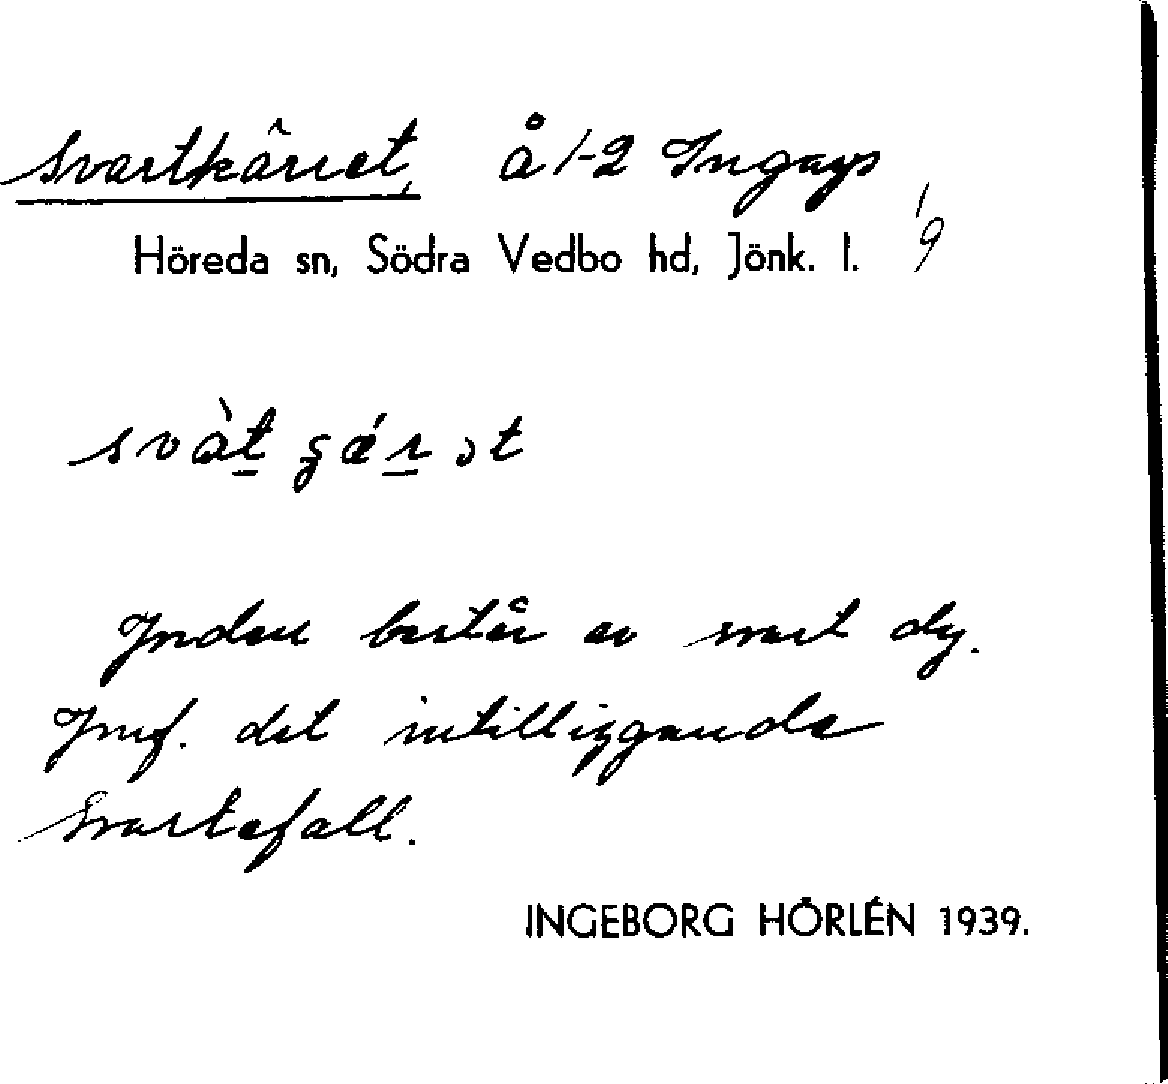 Svartkärret, å 1-2 Ingarp 1/9
Höreda sn, Södra Vedbo hd, Jönk. l.
Jorden består av svart dy.
Jmf. det intilliggande
Svartefall.
INGEBORG HÖRLÉN 1939.